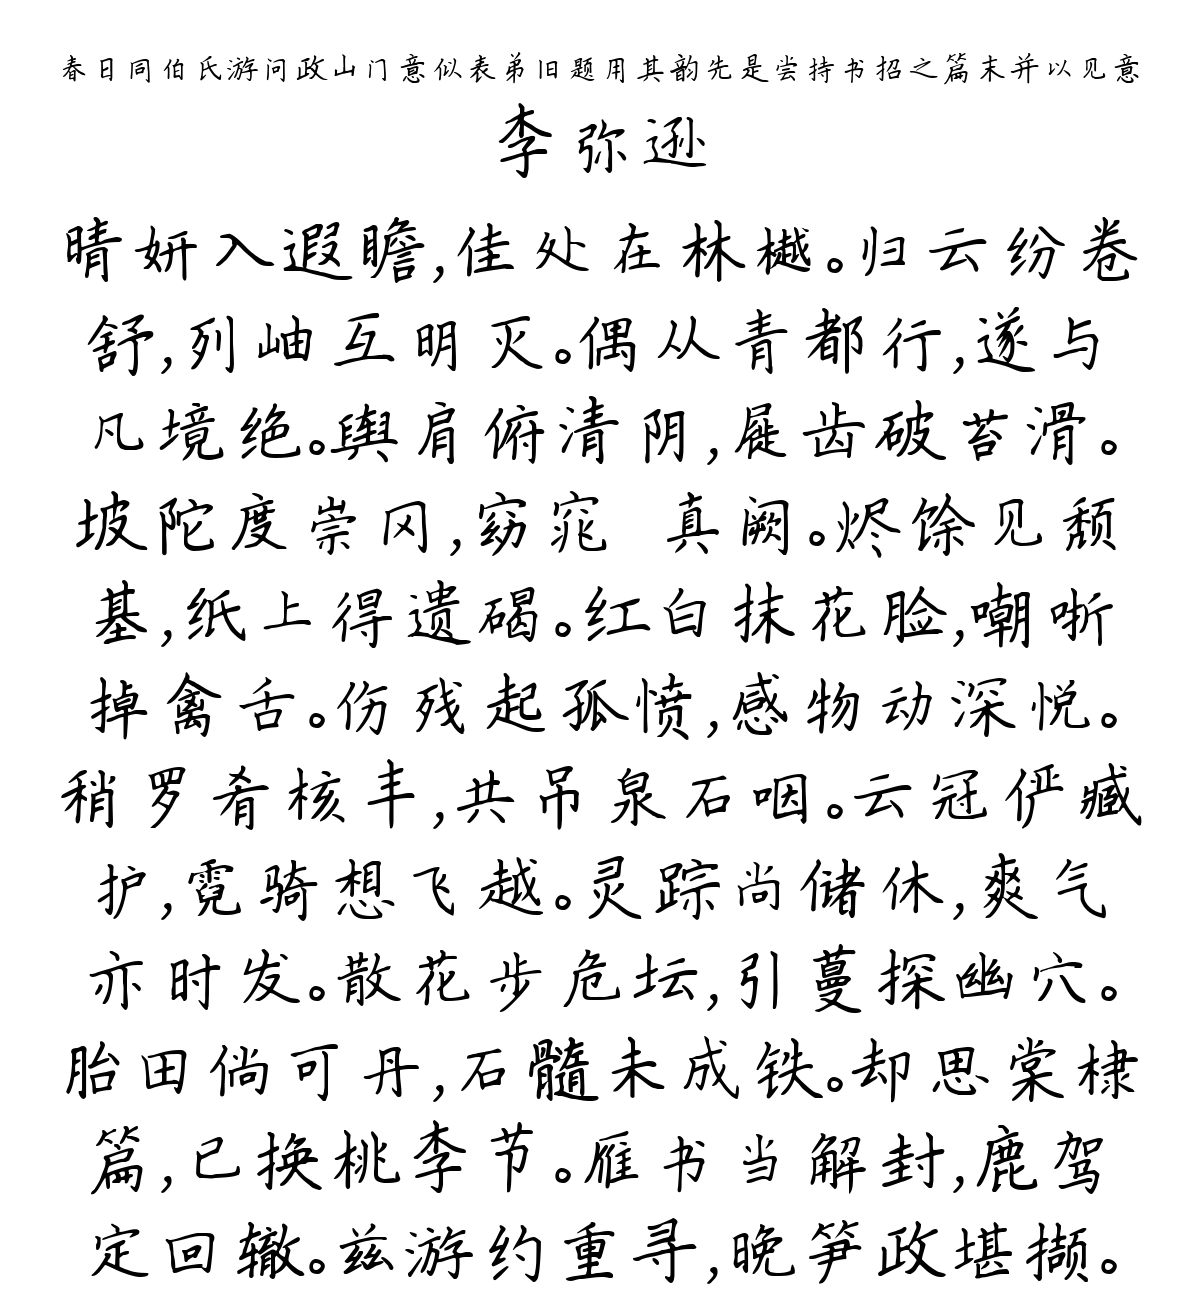 春日同伯氏游问政山门意似表弟旧题用其韵先是尝持书招之篇末并以见意
李弥逊
晴妍入遐瞻,佳处在林樾。归云纷卷
舒,列岫互明灭。偶从青都行,遂与
凡境绝。舆肩俯清阴,屣齿破苔滑。
坡陀度崇冈,窈窕 真阙。烬馀见颓
基,纸上得遗碣。红白抹花脸,嘲哳
掉禽舌。伤残起孤愤,感物动深悦。
稍罗肴核丰,共吊泉石咽。云冠俨臧
护,霓骑想飞越。灵踪尚储休,爽气
亦时发。散花步危坛,引蔓探幽穴。
胎田倘可丹,石髓未成铁。却思棠棣
篇,已换桃李节。雁书当解封,鹿驾
定回辙。兹游约重寻,晚笋政堪撷。